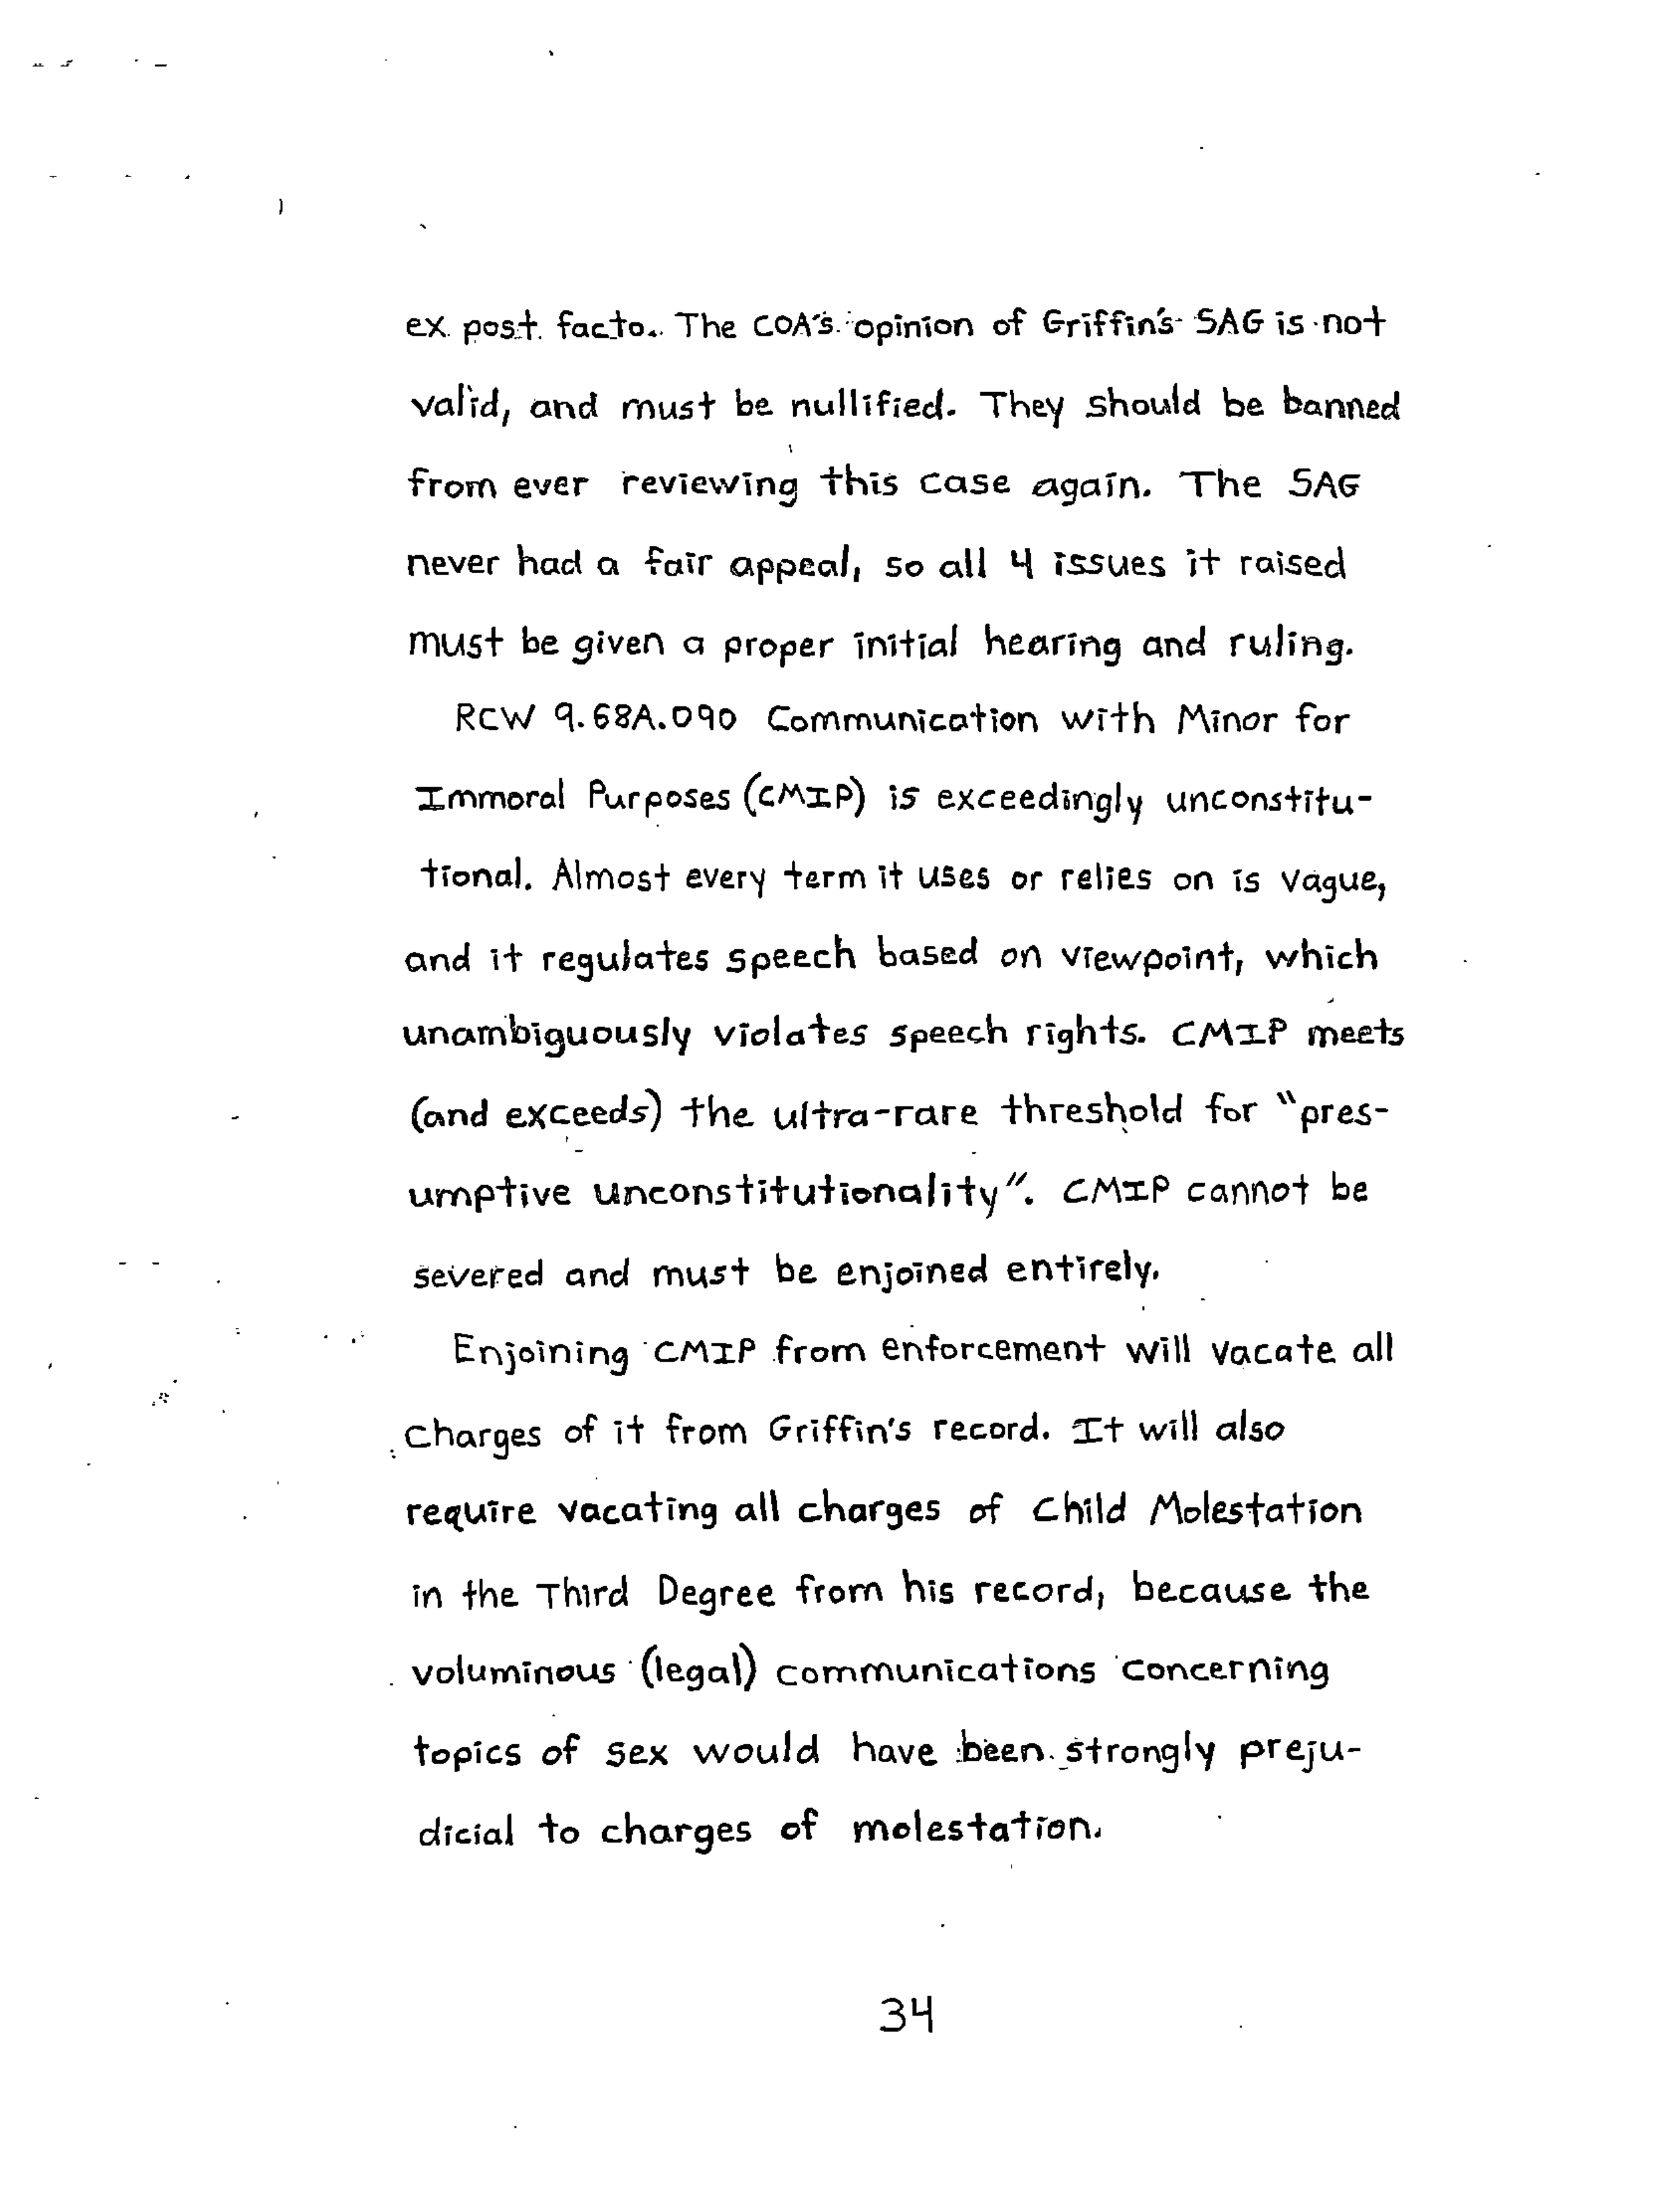 ex post facto. The COA's opinion of Griffin's SAG is not
valid, and must be nullified. They should be banned
from ever reviewing this case again. The SAG
never had a fair appeal, so all 4 issues it raised
must be given a proper initial hearing and ruling.
RCW 9.68A.090 Communication with Minor for
Immoral Purposes (CMIP) is exceedingly unconstitu-
tional. Almost every term it uses or relies on is vague,
and it regulates speech based on viewpoint, which
unambiguously violates speech rights. CMIP meets
(and exceeds) the ultra-rare threshold for "pres-
umptive unconstitutionality". CMIP cannot be
severed and must be enjoined entirely.
Enjoining CMIP from enforcement will vacate all
charges of it from Griffin's record. It will also
require vacating all charges of Child Molestation
in the Third Degree from his record, because the
voluminous (legal) communications concerning
topics of sex would have been strongly preju-
dicial to charges of molestation.
34